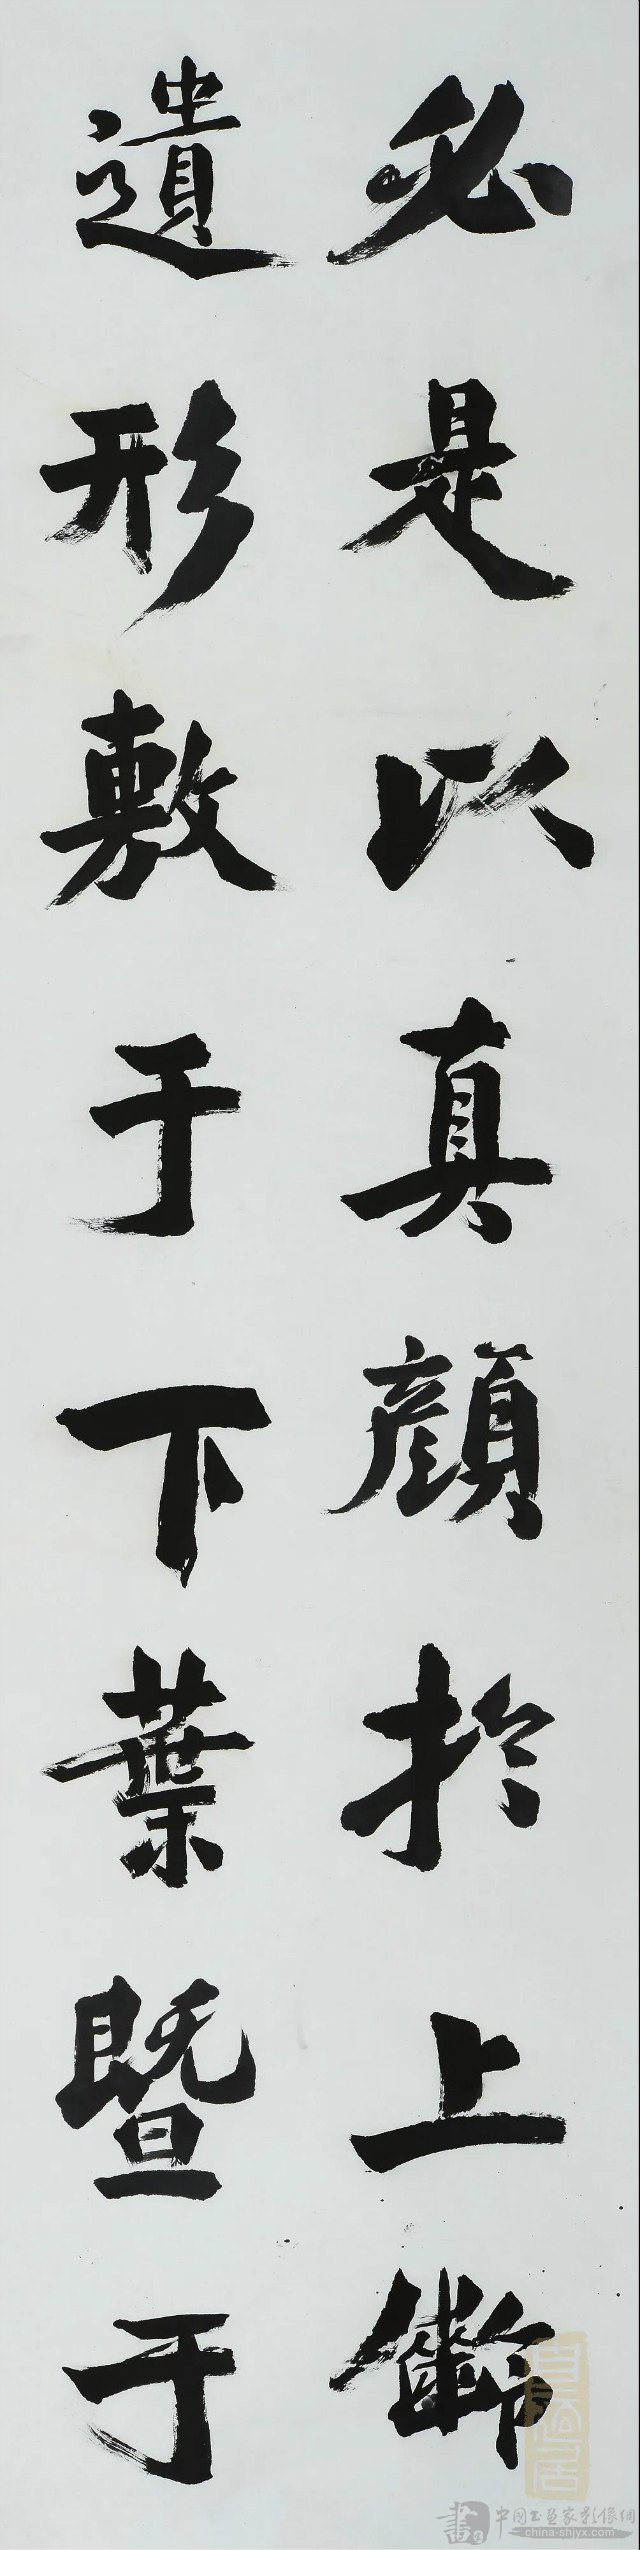 必是以真顏於上齡
遺形敷于下葉暨于
書
中國书画家影像網
china-shjyx.com